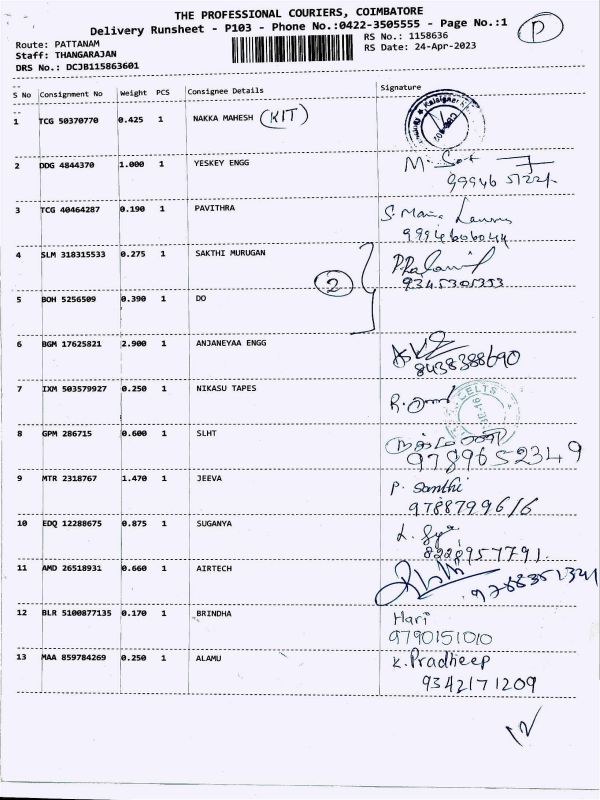 THE PROFESSIONAL COURIERS, COIMBATORE
Delivery Runsheet - P103 - Phone No.:0422-3505555 - Page No.:1
P
Route: PATTANAM
RS No.: 1158636
Staff: THANGARAJAN
RS Date: 24-Apr-2023
DRS No.: DCJB115863601
S No Consignment No Weight PCS Consignee Details Signature
1 TCG 50370770 0.425 1 NAKKA MAHESH (KIT)
2 DDG 4844370 1.000 1 YESKEY ENGG
3 TCG 40464287 0.190 1 PAVITHRA
9994606044
4 SLM 318315533 0.275 1 SAKTHI MURUGAN
9345305353
2
5 BOH 5256509 0.390 1 DO
6 BGM 17625821 2.900 1 ANJANEYAA ENGG
8438388690
7 IXM 503579927 0.250 1 NIKASU TAPES
CELTS
8 GPM 286715 0.600 1 SLHT
9789652349
9 MTR 2318767 1.470 1 JEEVA P. Santhi
9788799616
10 EDQ 12288675 0.875 1 SUGANYA
8228957791.
11 AMD 26518931 0.660 1 AIRTECH
9788351341
12 BLR 5100877135 0.170 1 BRINDHA Hari
9790151010
13 MAA 859784269 0.250 1 ALAMU K. Pradheep
9342171209
12